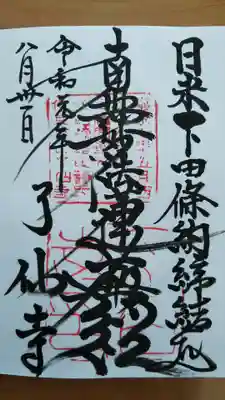 日米下田條約締結地
南無妙法蓮華経
令和元年
八月卅一日
了仙寺